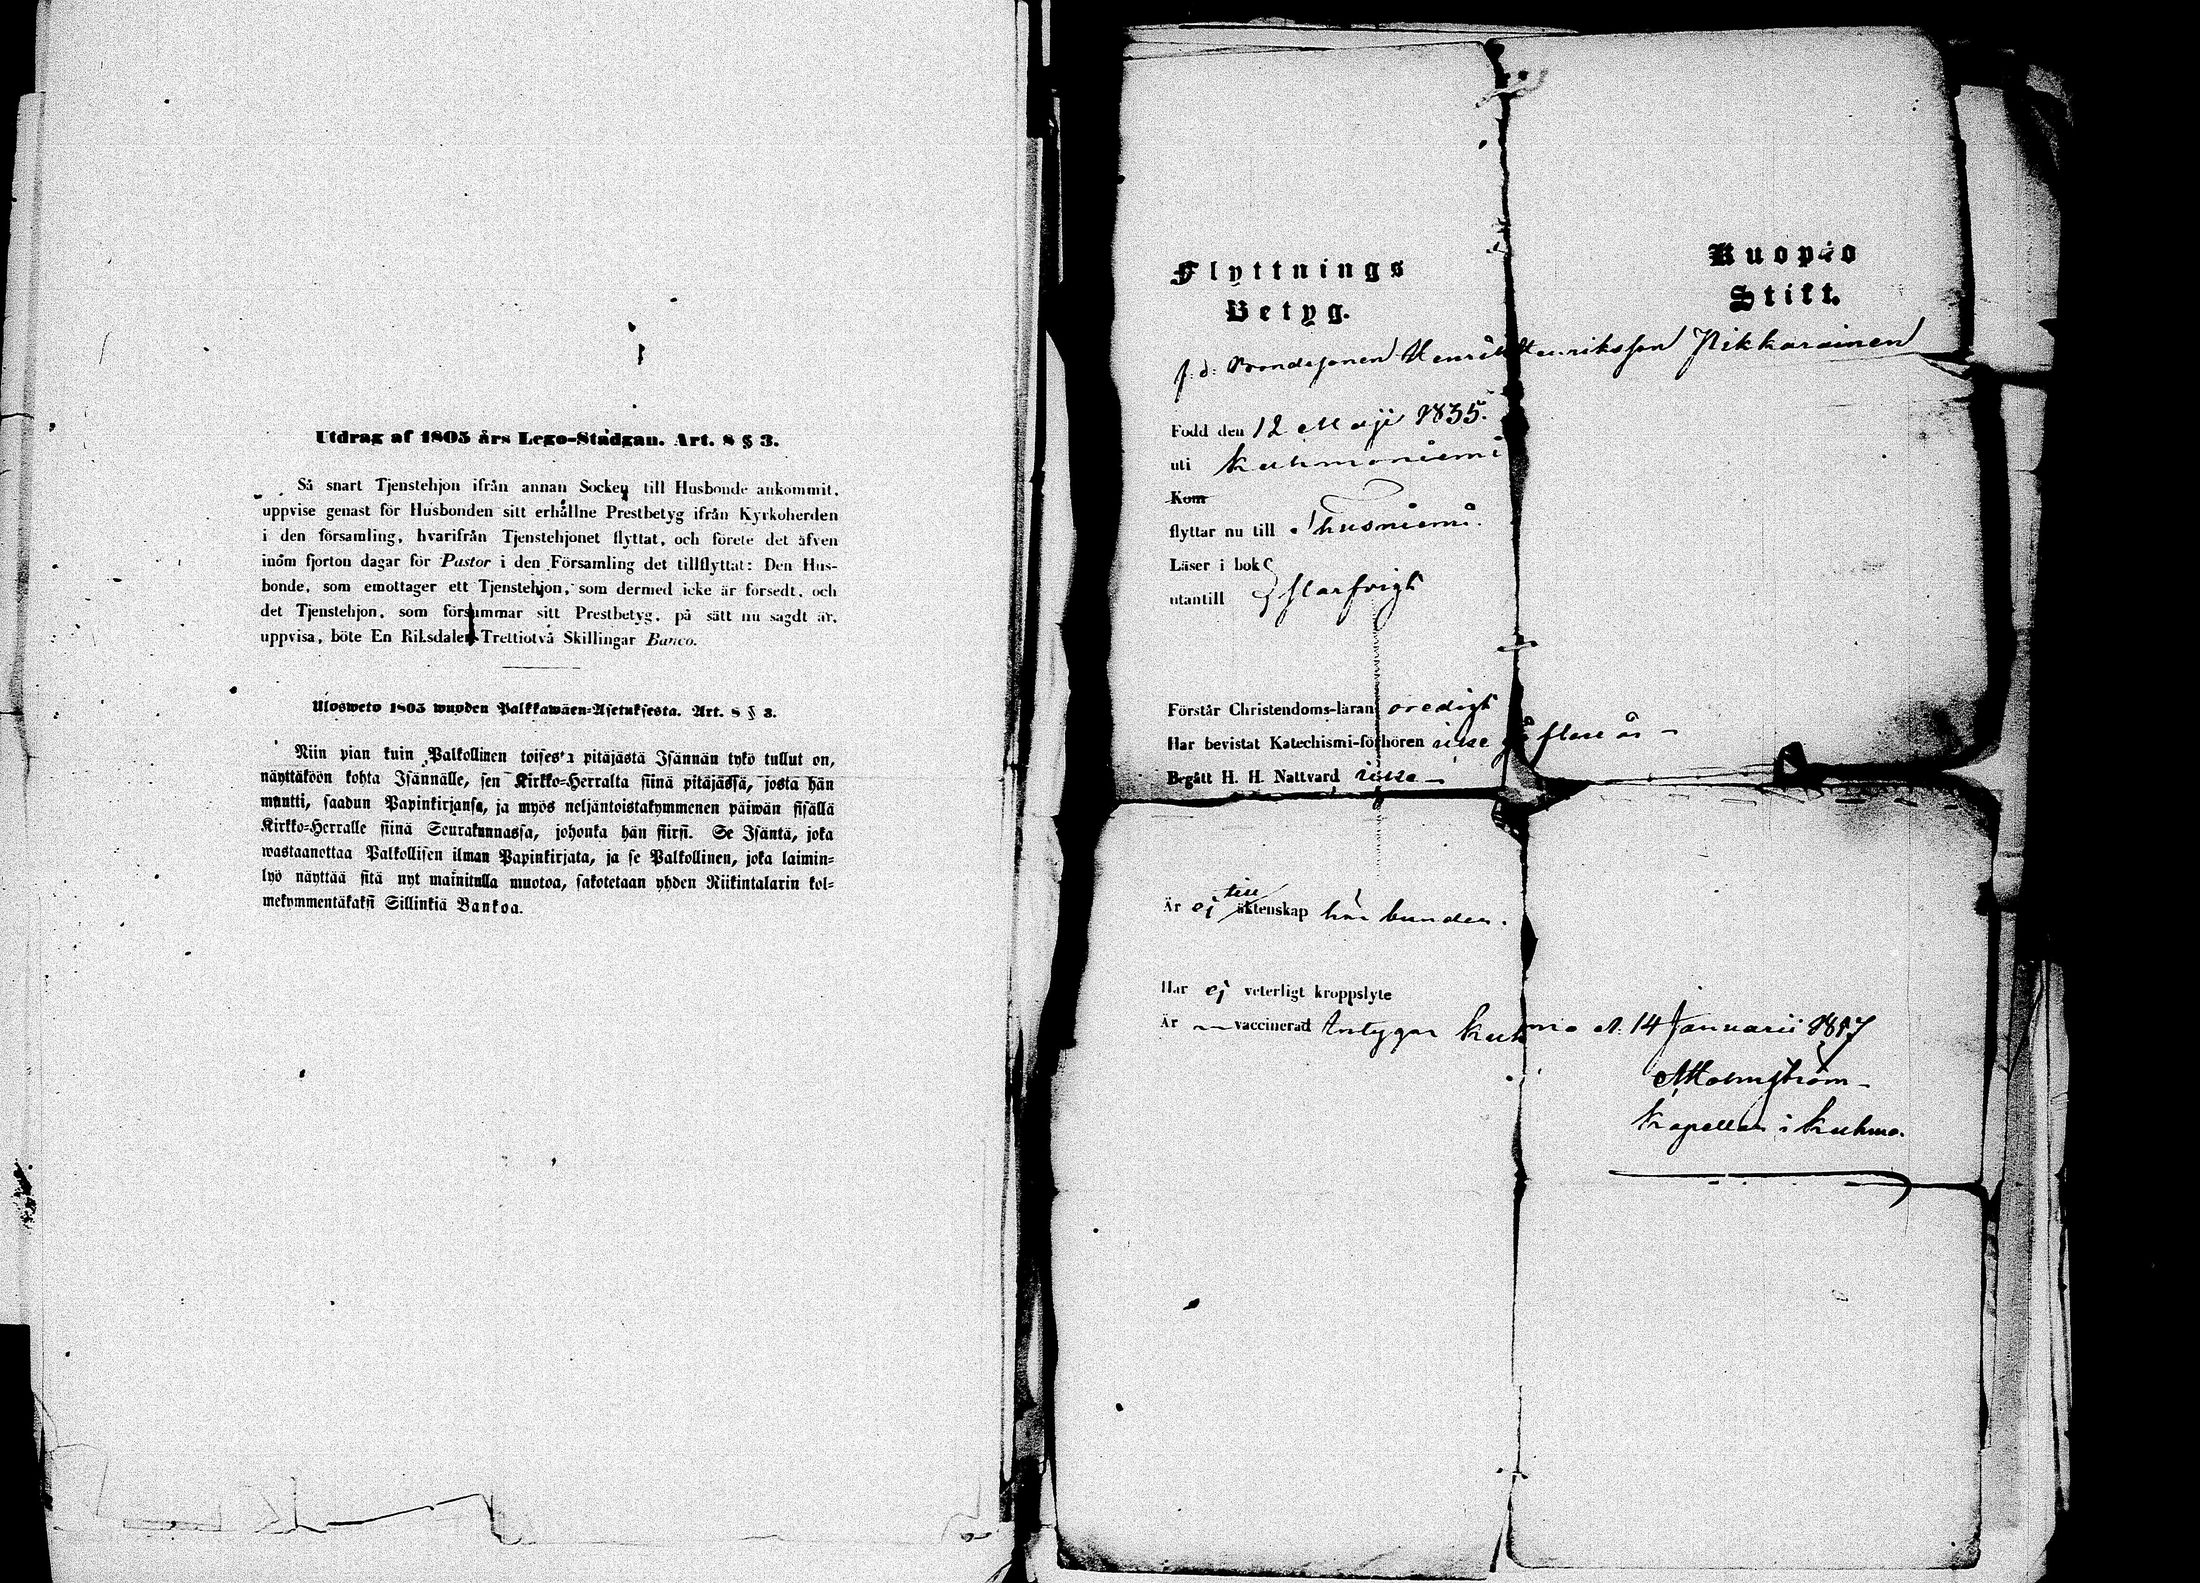 Utdrag af 1805 års Lego-Stadgan. Art. 8 § 3.
Så snart Tjenstehjon ifrån annan Socken till Husbonde ankommit,
uppvise genast för Husbonden sitt erhållne Prestbetyg ifrån Kyrkoherden
i den församling, hvarifrån Tjenstehjonet flyttat, och förete det äfven
inom fjorton dagar för Pastor i den Församling det tillflyttat: Den Hus-
bonde, som emottager ett Tjenstehjon, som dermed icke är försedt, och
det Tjenstehjon, som försummar sitt Prestbetyg, på sätt nu sagdt är,
uppvisa, böte En Riksdaler Trettiotvå Skillingar Banco.
Ulosweto 1805 wuoden Palkkawäen-Asetuksesta. Art. 8 § 3.
Niin pian kuin Palkollinen toisesta pitäjästä Isännän tykö tullut on,
näyttäköön kohta Isännälle, sen Kirkko-Herralta siinä pitäjässä, josta hän
muutti, saadun Papinkirjansa, ja myös neljäntoistakymmenen päiwän sisällä
Kirkko-Herralle siinä Seurakunnassa, johonka hän siirsi. Se Isäntä, joka
wastaanottaa Palkollisen ilman Papinkirjata, ja se Palkollinen, joka laimin-
lyö näyttää sitä nyt mainitulla muotoa, sakotetaan yhden Riikintalarin kol-
mekymmentäkaksi Sillinkiä Bankoa.
Flyttnings
Betyg.
Kuopio
Stift.
f. d. Bondesonen Henrik Henriksson Pikkarainen
Född den 12 Maji 1835.
uti Kuhmoniemi
Kom
flyttar nu till
Läser i bok
utantill
Förstår Christendoms-läran oredigt
Har bevistat Katechismi-förhören icke på flere år -
Begått H. H. Nattvard icke -
Är ej till äktenskap här bunden.
Har ej veterligt kroppslyte
Är — vaccinerad Intygar Kuhmo d. 14 Januarii 1857
Kapellan i Kuhmo.